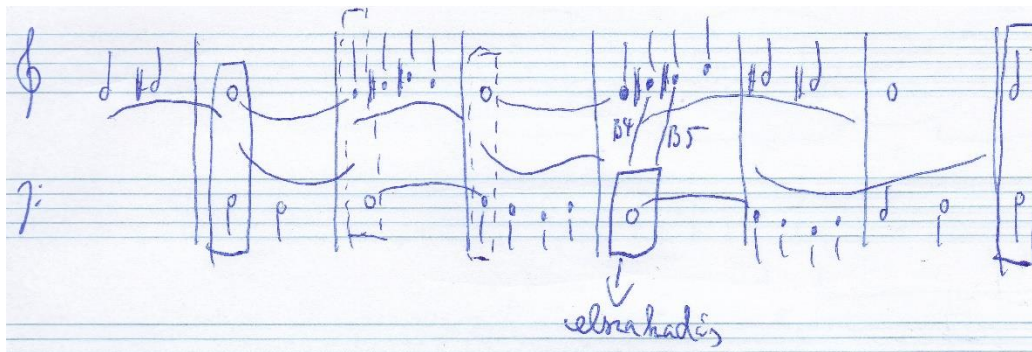 B4 B5
elszakadás